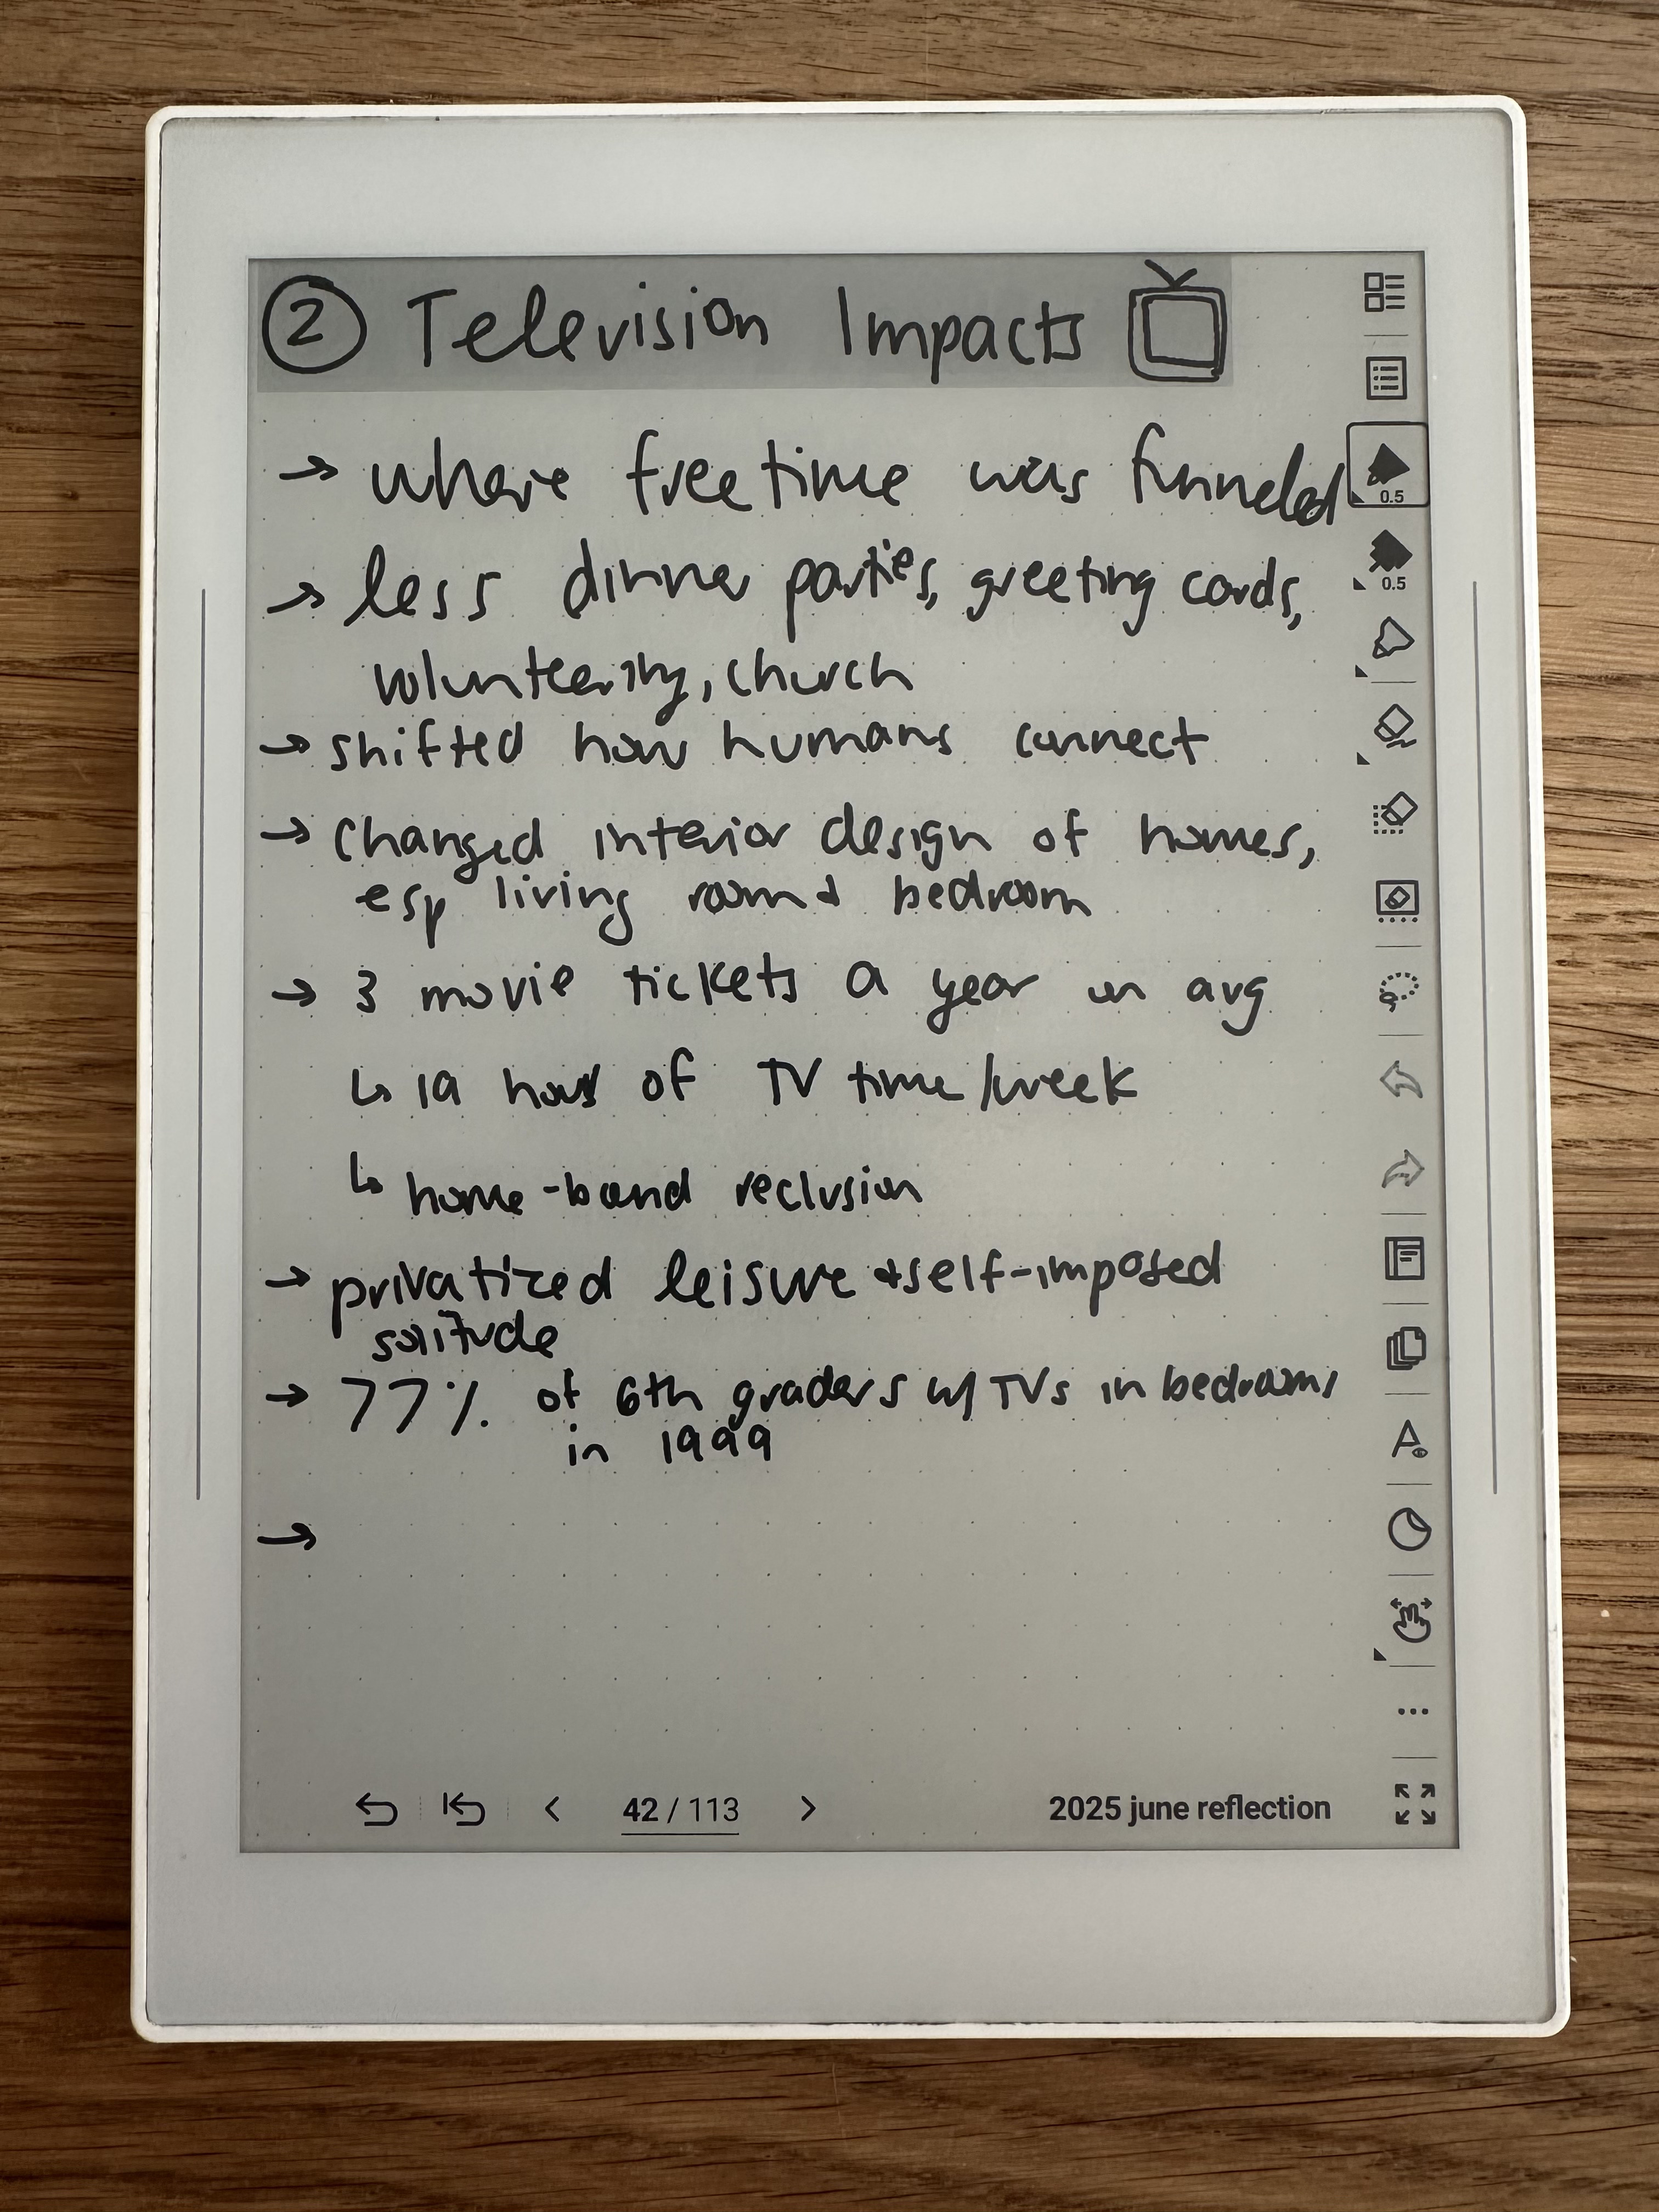 ② Television Impacts
→ where free time was funneled
→ less dinner parties, greeting cards,
volunteering, church
→ shifted how humans connect
→ changed interior design of homes,
esp living room + bedroom
→ 3 movie tickets a year on avg
↳ 19 hours of TV time/week
↳ home-bound reclusion
→ privatized leisure + self-imposed
solitude
→ 77% of 6th graders w/ TVs in bedrooms
in 1999
→
0.5
0.5
42 / 113
2025 june reflection